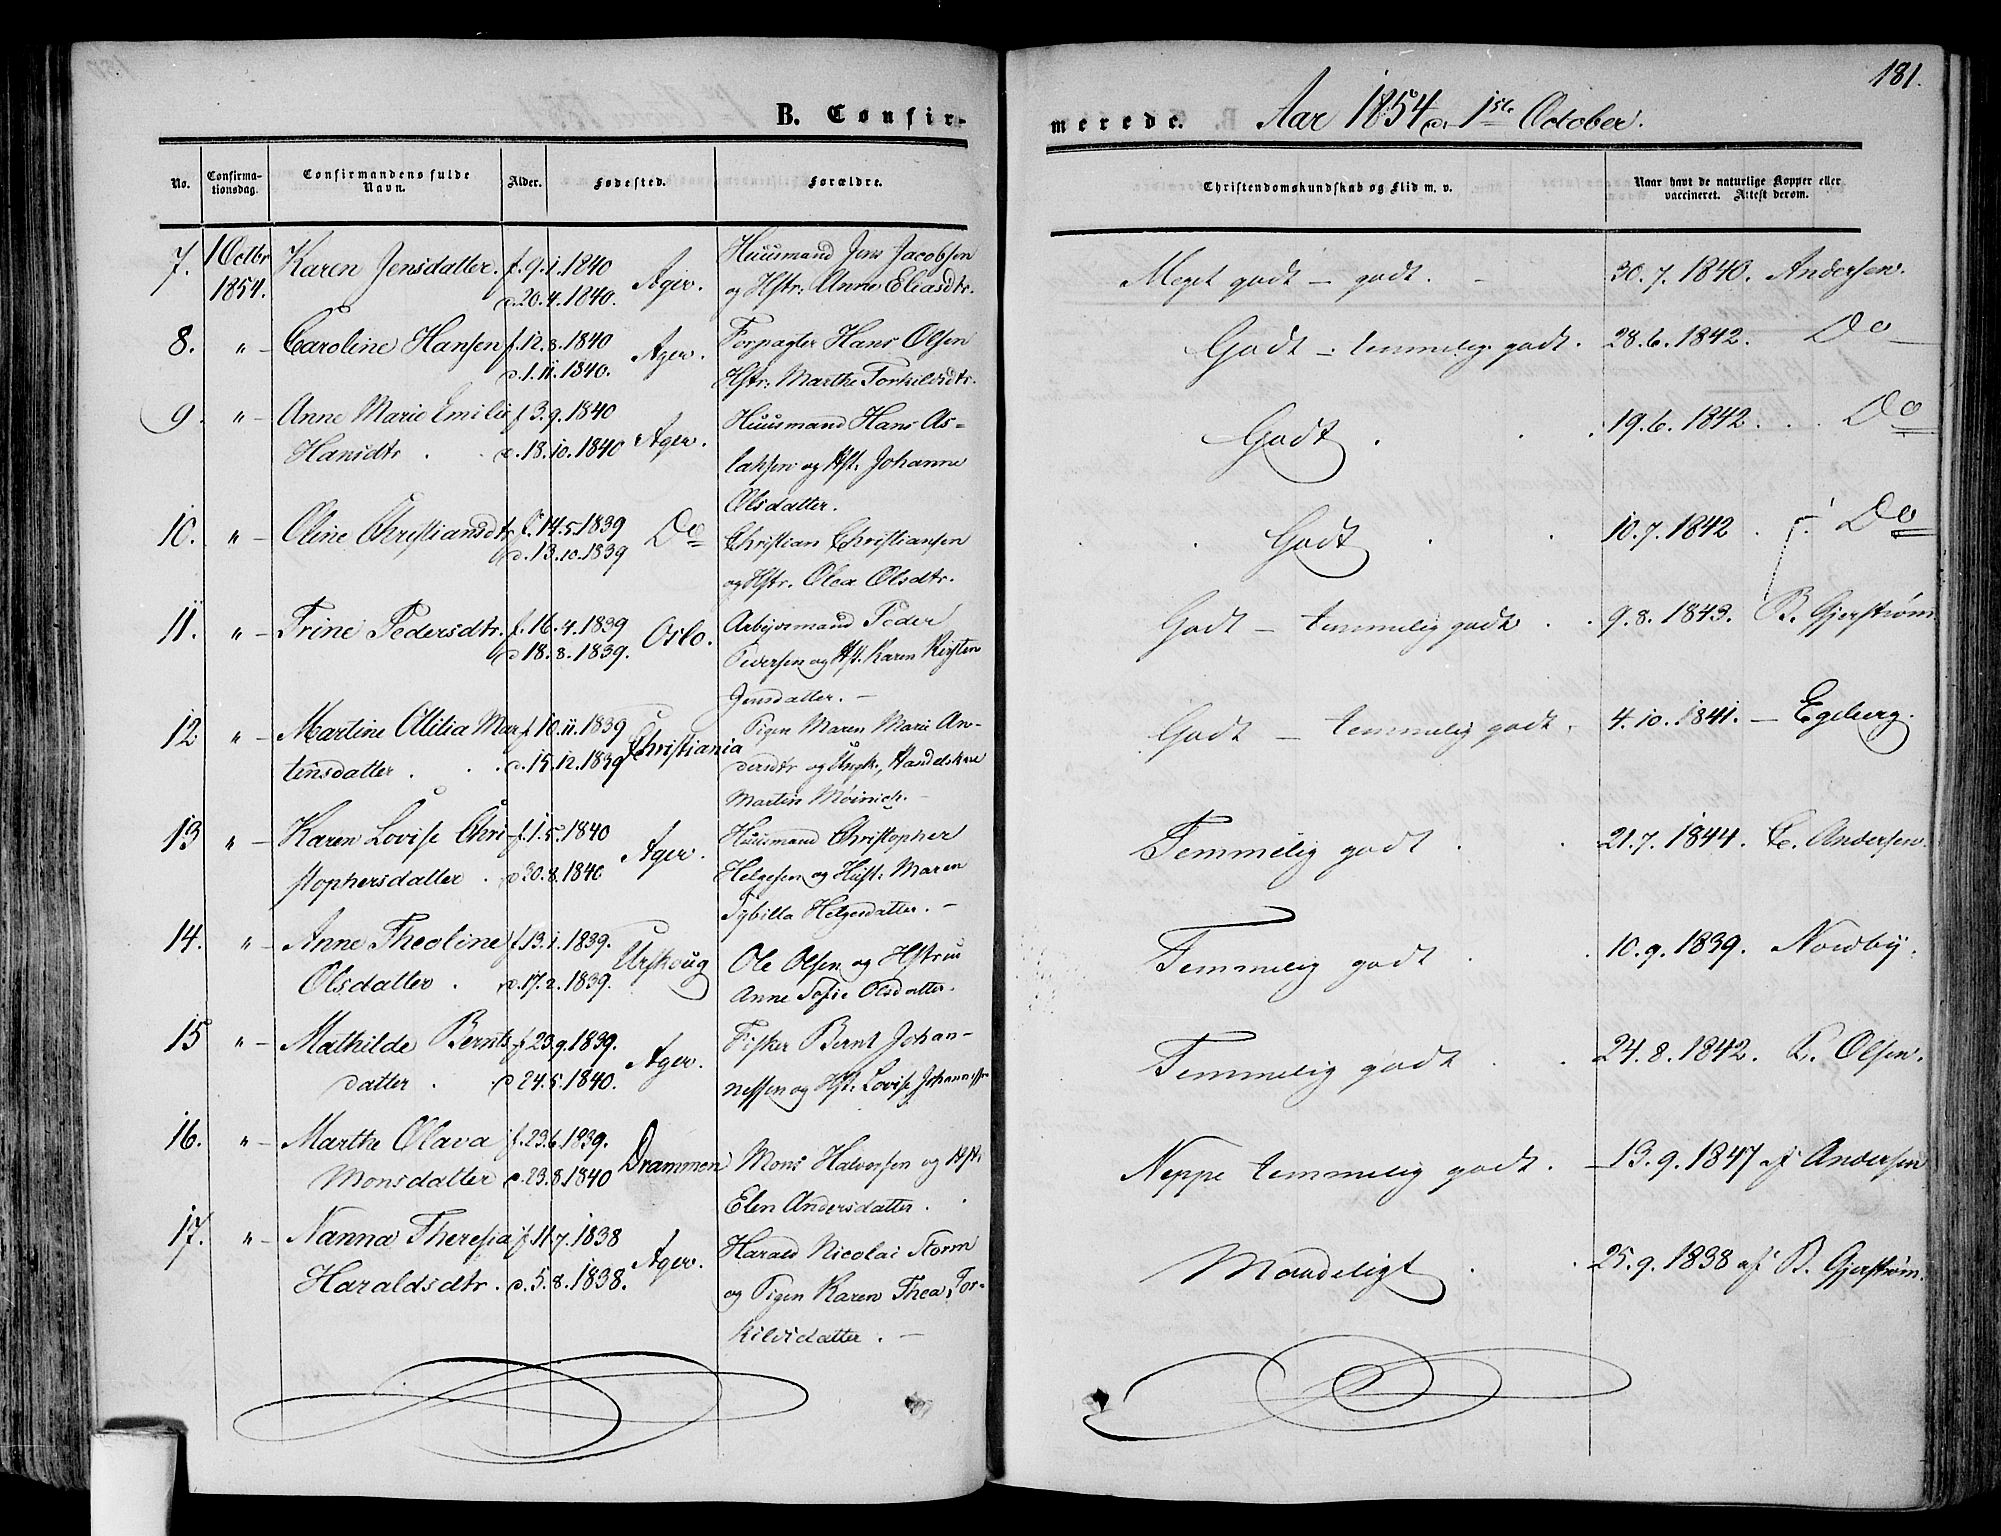 181.
B. Confir-
merede. Aar 1854 d. 1ste October.
No.
Confirma-
tionsdag.
Confirmandens fulde
Navn.
Alder.
Fødested.
Forældre.
Christendomskundskab og Flid m. v.
Naar havt de naturlige Kopper eller
vaccineret. Attest derom.
7. 1 Octbr Karen Jensdatter. f. 9.1.1840 Ager. Huusmand Jens Jacobsen Meget godt – godt. – 30.7.1840. Andersen.
1854. d. 20.4.1840. og Hstr: Anne Eliasdtr.
8. " – Caroline Hansen f. 12.8.1840 Ager. Forpagter Hans Olsen Godt – temmelig godt. 28.6.1842. Do
d. 1.11.1840. Hstr: Marthe Torkildsdtr.
9. " – Anne Marie Emilie f. 3.9.1840 Ager. Huusmand Hans As- Godt . . . 19.6.1842. . . Do
Hansdtr . d. 18.10.1840 laksen og Hst. Johanne
Olsdatter.
10. " – Oline Christiansdtr, f. 14.5.1839 Do Christian Christiansen Godt . . 10.7.1842 . Do
d. 13.10.1839 og Hstr. Olea Olsdtr.
11. " – Trine Pedersdtr. f. 16.4.1839 Oslo. Arbejdsmand Peder Godt – temmelig godt . . 9.8.1843. B. Gjerstrøm
d. 18.8.1839. Pedersen og Hst. Karen Kirsten
Jensdatter. –
12 " – Martine Otilia Mar- f. 10.11.1839 Christiania Pigen Maren Marie An- Godt – temmelig godt . 4.10.1841. – Egeberg.
tinsdatter . . . d. 15.12.1839 dersdtr og Ungk., Handelskar
Martin Møinich. –
13 " – Karen Lovise Chri- f. 1.5.1840 Ager. Huusmand Christopher Temmelig godt . . 21.7.1844. C. Andersen
stophersdatter . d. 30.8.1840 Helgesen og Hust: Maren
Sybilla Helgesdatter. –
14. " – Anne Theoline f. 13.1.1839. Urskoug Ole Olsen og Hstru Temmelig godt . . 10.9.1839. Nordby.
Olsdatter . d. 17.2.1839. Anne Sofie Olsdatter.
15 " – Mathilde Bernts- f. 23.9.1839. Ager. Fisker Bernt Johan- Temmelig godt . . 24.8.1842. R. Olsen.
datter . d. 24.5.1840. nessen og Hst. Lovise Johannesdtr
16. " – Marthe Olava f. 23.6.1839. Drammen Mons Halvorsen og Hst. Neppe temmelig godt . – 13.9.1847 af Andersen
Monsdatter d. 23.8.1840 Elen Andersdatter .
17. " – Nanna Theresia f. 11.7.1838 Ager. Harald Nicolai Storm Maadeligt . . 25.9.1838 af B. Gjerstrøm.
Haraldsdtr . d. 5.8.1838. og Pigen Karen Thea Tor-
kildsdatter . –